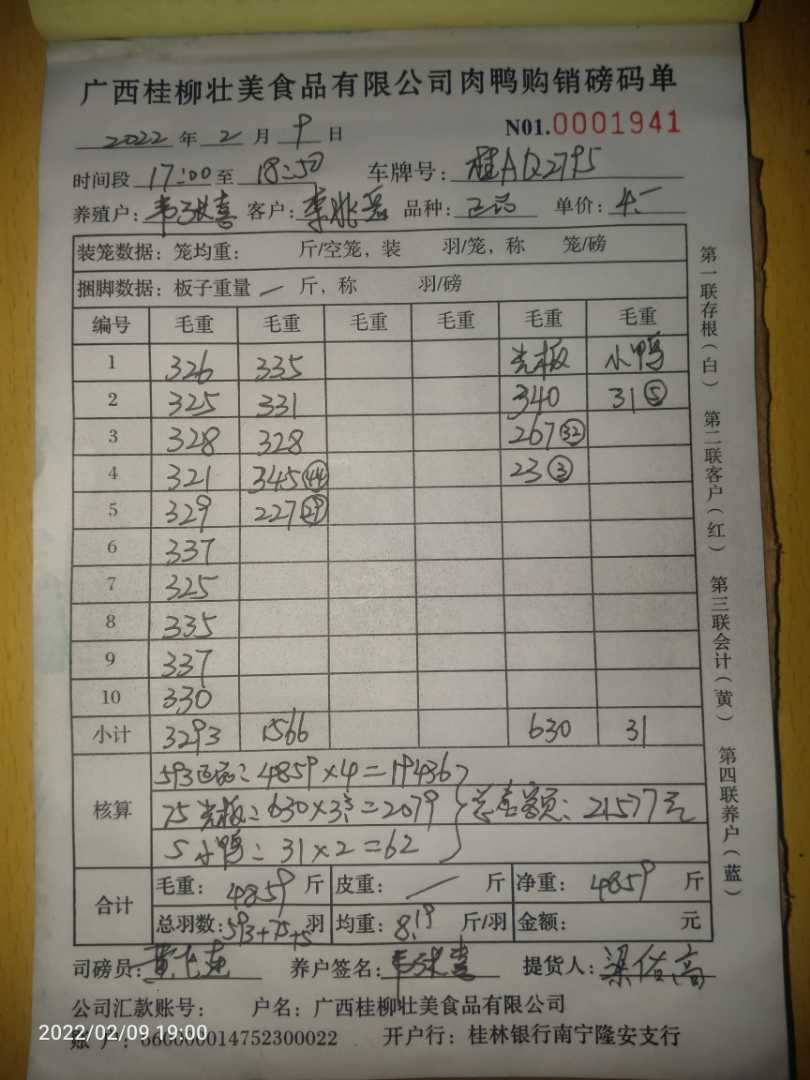 广西桂柳壮美食品有限公司肉鸭购销磅码单
2022 年 2 月 9 日 N01.0001941
时间段 17:00 至 18:50 车牌号: 桂AQ2795
养殖户: 韦 喜 客户: 李兆 品种: 正品 单价: 4.-
装笼数据: 笼均重: 斤/空笼, 装 羽/笼, 称 笼/磅
捆脚数据: 板子重量 — 斤, 称 羽/磅
编号 毛重 毛重 毛重 毛重 毛重 毛重
1 326 335 光板 小鸭
2 325 331 340 31⑤
3 328 328 267㉜
4 321 345㊹ 23③
5 329 227㉙
6 337
7 325
8 335
9 337
10 330
小计 3293 1566 630 31
核算
593正品: 4859×4=19436
75光板: 630×3.3=2079 总金额: 21577元
5小鸭: 31×2=62
合计
毛重: 4859 斤 皮重: — 斤 净重: 4859 斤
总羽数: 593+75+5 羽 均重: 8.19 斤/羽 金额: 元
司磅员: 黄 养户签名: 韦 喜 提货人: 梁 高
公司汇款账号: 户名: 广西桂柳壮美食品有限公司
账 户: 660000014752300022 开户行: 桂林银行南宁隆安支行
第一联存根(白) 第二联客户(红) 第三联会计(黄) 第四联养户(蓝)
2022/02/09 19:00